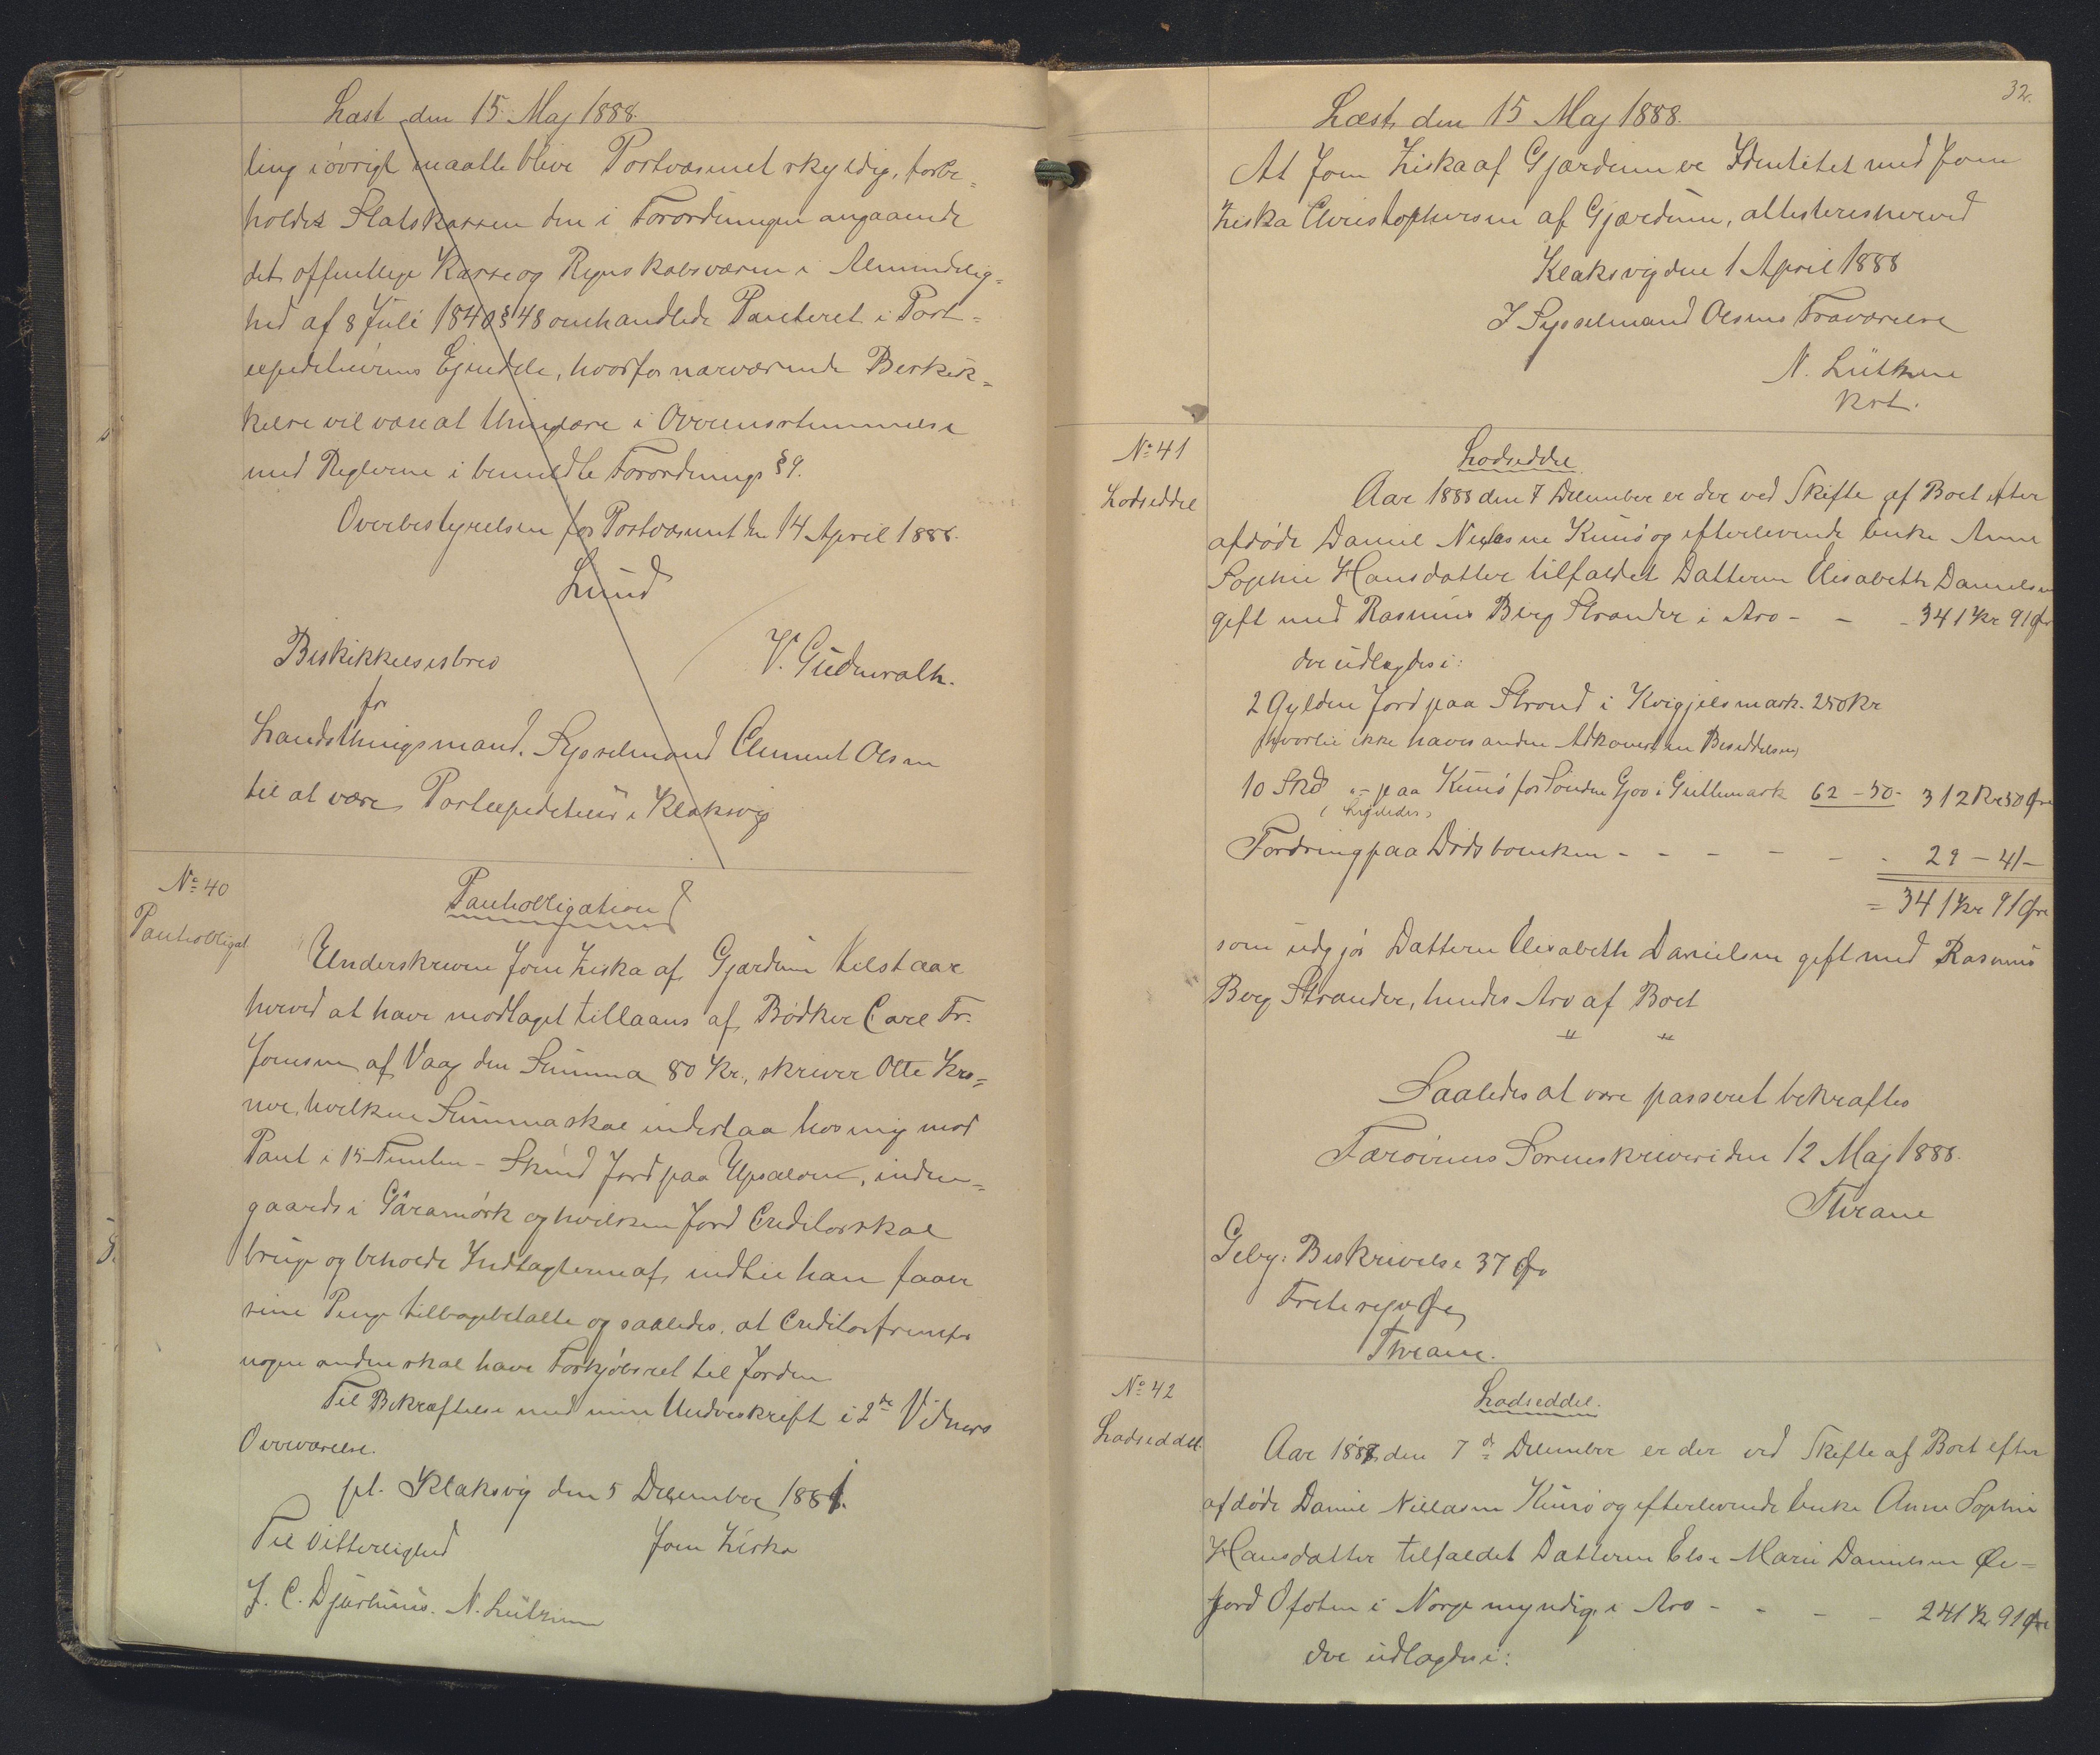 Læst den 15 Maj 1888.
ling iøvrigt maatte blive Postvæsenet skyldig, forbe-
holdes Statskassen den i Forordningen angaaende
det offentlige Kasse og Regnskabsvæsen i Almindelig-
hed af 8 Juli 1840 § 48 omhandlede Panteret i Post-
expediteurens Ejendele, hvorfor nærværende Beskik-
kelse vil være at thinglæse i Overensstemmelse
med Reglerne i bemeldte Forordnings § 9.
Overbestyrelsen for Postvæsenet den 14 April 1888.
Lund
Beskikkelsesbrev
V. Gudmalh.
for
Landsthingsmand. Sysselmand Clement Olsen
til at være Postexpediteur i Klaksvig
No 40
Pantobligat
Pantobligation
Underskrevne Joen Ziska af Gjærdum tilstaar
herved at have modtaget tillaans af Bødker Carl Fr.
Joensen af Vaag den Summa 80 Kr., skriver Otte Kro-
ner, hvilken Summa skal indestaa hos mig mod
Pant i 15 Femten - Skind Jord paa Upsalom, inden-
gaards i Gâramørk og hvilken Jord Creditor skal
bruge og beholde Indtægterne af, indtil han faaer
sine Penge tilbagebetalte og saaledes, at Creditor fremfor
nogen anden skal have Forkjøbsret til Jorden
Til Bekræftelse med min Underskrift i 2de Vidners
Overværelse.
pt. Klaksvig den 5 December 1881.
Til Vitterlighed
Joen Ziska
J. C. Djurhuus. N. Lützen
32.
Læst den 15 Maj 1888.
At Joen Ziska af Gjærdum er Identitet med Joen
Ziska Christophersen af Gjærdum, attesteres herved
Klaksvig den 1 April 1888
I Sysselmand Olsens Fraværelse
N. Lützen
Kst.
No 41
Lodseddel
Lodseddel
Aar 1888 den 7 December er der ved Skifte af Boet efter
afdøde Daniel Niclasen Kunø og efterlevende Enke Anne
Sophie Hansdatter tilfaldet Datteren Elisabeth Danielsen
gift med Rasmus Berg Strander i Arv - - - 341 Kr 91 Øre
der udlagdes i:
2 Gylden Jord paa Strond i Kvigjelsmark. 250 Kr
(hvortil ikke haves anden Adkomst en Besiddelsen)
10 Skd "- paa Kunø for Sønden Gjov i Gullemark 62 - 50 - 312 Kr 50 Øre
(Ligeledes)
Fordring paa Dødsboenken - - - - - - 29 - 41 -
= 341 Kr 91 Øre
som udgjør Datteren Elisabeth Danielsen gift med Rasmus
Berg Strander, hendes Arv af Boet
" "
Saaledes at være passeret bekræftes
Færøernes Sorenskriveri den 12 Maj 1888.
Thrane
Geby: Beskrivelse 37 Øre
Thrane.
No 42
Lodseddel.
Lodseddel.
Aar 1887 den 7de December er der ved Skifte af Boet efter
afdøde Daniel Niclasen Kunø og efterlevende Enke Anne Sophie
Hansdatter tilfaldet Datteren Else Marie Danielsen Øe-
fjord Ofoten i Norge myndig i Arv - - - - 241 Kr 91 Øre
der udlagdes i: